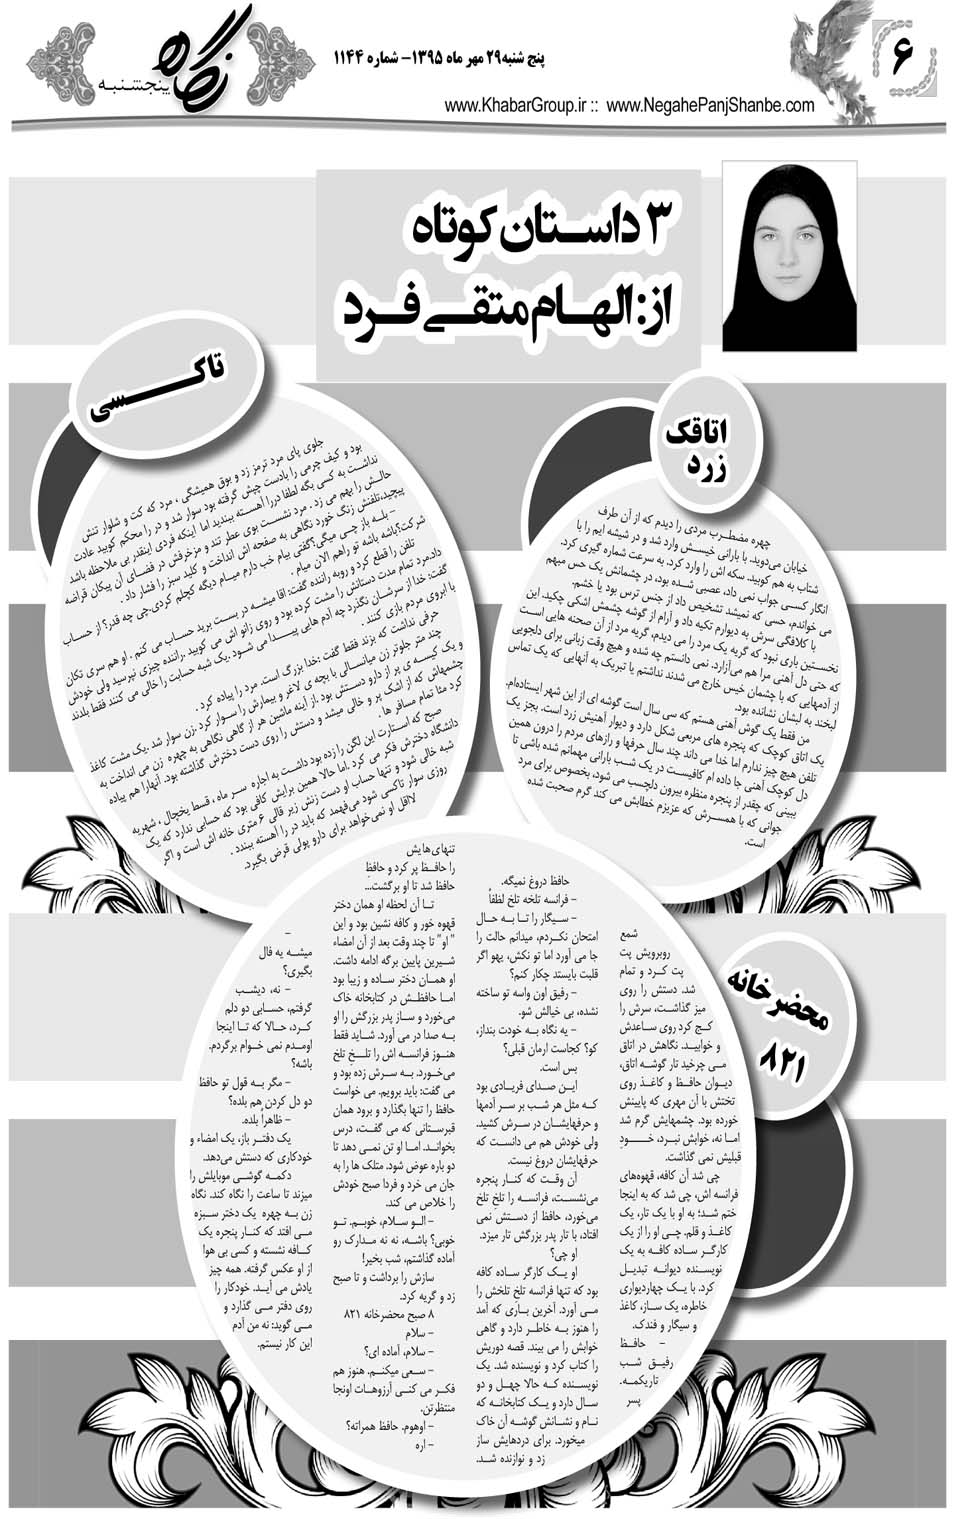 ۶
پنج شنبه۲۹ مهر ماه ۱۳۹۵- شماره ۱۱۴۴
نگاه
پنجشنبه
www.KhabarGroup.ir :: www.NegahePanjShanbe.com
۳ داستان کوتاه
از: الهام متقی فرد
اتاقک
زرد
چهره مضطرب مردی را دیدم که از آن طرف
خیابان می‌دوید. با بارانی خیسش وارد شد و در شیشه ایم را با
شتاب به هم کوبید. سکه اش را وارد کرد. به سرعت شماره گیری کرد.
انگار کسی جواب نمی داد، عصبی شده بود، در چشمانش یک حس مبهم
می خواندم، حسی که نمیشد تشخیص داد از جنس ترس بود یا خشم.
با کلافگی سرش به دیوارم تکیه داد و آرام از گوشه چشمش اشکی چکید. این
نخستین باری نبود که گریه یک مرد را می دیدم، گریه مرد از آن صحنه هایی است
که حتی دل آهنی مرا هم می‌آزارد. نمی دانستم چه شده و هیچ وقت زبانی برای دلجویی
از آدمهایی که با چشمان خیس خارج می شدند نداشتم یا تبریک به آنهایی که یک تماس
لبخند به لبشان نشانده بود.
من فقط یک گوش آهنی هستم که سی سال است گوشه ای از این شهر ایستاده‌ام.
یک اتاق کوچک که پنجره های مربعی شکل دارد و دیوار آهنیش زرد است. بجز یک
تلفن هیچ چیز ندارم اما خدا می داند چند سال حرفها و رازهای مردم را درون همین
دل کوچک آهنی جا داده ام کافیست در یک شب بارانی مهمانم شده باشی تا
ببینی که چقدر از پنجره منظره بیرون دلچسب می شود، بخصوص برای مرد
جوانی که با همسرش که عزیزم خطابش می کند گرم صحبت شده
است.
تاکسی
جلوی پای مرد ترمز زد و بوق همیشگی ، مرد که کت و شلوار تنش
بود و کیف چرمی را بادست چپش گرفته بود سوار شد و در را محکم کوبید عادت
نداشت به کسی بگه لطفا دررا آهسته ببندید اما اینکه فردی اینقدر بی ملاحظه باشد
حالش را بهم می زد . مرد نشست بوی عطر تند و مزخرفش در فضای آن پیکان قراضه
پیچید،تلفنش زنگ خورد نگاهی به صفحه اش انداخت و کلید سبز را فشار داد .
- بله باز چی میگی؟گفتی پیام خب دارم میام دیگه کچلم کردی.چی چه قدر؟ از حساب
شرکت؟باشه باشه تو راهم الان میام .
تلفن را قطع کرد و روبه راننده گفت: اقا میشه در بست برید حساب می کنم . او هم سری تکان
داد.مرد تمام مدت دستانش را مشت کرده بود و روی زانو اش می کوبید .راننده چیزی نپرسید ولی خودش
گفت: خدا از سرشان نگذرد چه آدم هایی پیــدا می شود .یک شبه حسابت را خالی می کنند فقط بلدند
با ابروی مردم بازی کنند .
حرفی نداشت که بزند فقط گفت :خدا بزرگ است. مرد را پیاده کرد .
چند متر جلوتر زن میانسالی با بچه ی لاغر و بیمارش را سوار کرد .زن سوار شد .یک مشت کاغذ
و یک کیسه ی پر از دارو دستش بود .از آینه ماشین هر از گاهی نگاهی به چهره زن می انداخت به
چشمهاش که از اشک پر و خالی میشد و دستش را روی دست دخترش گذاشته بود. آنهارا هم پیاده
کرد مثا تمام مسافر ها .
صبح که استارت این لگن را زده بود داشت به اجاره سر ماه ، قسط یخچال ، شهریه
دانشگاه دخترش فکر می کرد .اما حالا همین برایش کافی بود که حسابی ندارد که یک
شبه خالی شود و تنها حساب او دست زنش زیر قالی ۶ متری خانه اش است و اگر
روزی سوار تاکسی شود می‌فهمد که باید در را آهسته ببندد .
لااقل او نمی‌خواهد برای دارو پولی قرض بگیرد.
محضرخانه
۸۲۱
شمع
روبرویش پت
پت کرد و تمام
شد، دستش را روی
میز گذاشت، سرش را
کج کرد روی ساعدش
و خوابید. نگاهش در اتاق
می چرخید تار گوشه اتاق،
دیوان حافظ و کاغذ روی
تختش با آن مهری که پایینش
خورده بود. چشمهایش گرم شد
اما نه، خوابش نبرد، خودِ
قبلیش نمی گذاشت.
چی شد آن کافه، قهوه‌های
فرانسه اش، چی شد که به اینجا
ختم شد؛ به او با یک تار، یک
کاغذ و قلم. چی او را از یک
کارگر ساده کافه به یک
نویسنده دیوانه تبدیل
کرد. با یک چهاردیواری
خاطره، یک ساز، کاغذ
و سیگار و فندک.
- حافظ
رفیق شب
تاریکمه.
پسر
حافظ دروغ نمیگه.
- فرانسه تلخه تلخ لطفاً
- سیگار را تا به حال
امتحان نکردم، میدانم حالت را
جا می آورد اما تو نکش، یهو اگر
قلبت بایستد چکار کنم؟
- رفیق اون واسه تو ساخته
نشده، بی خیالش شو.
- یه نگاه به خودت بنداز،
کو؟ کجاست ارمان قبلی؟
بس است.
این صدای فریادی بود
که مثل هر شب بر سر آدمها
و حرفهایشان در سرش کشید.
ولی خودش هم می دانست که
حرفهایشان دروغ نیست.
آن وقت که کنار پنجره
می‌نشست، فرانسه را تلخ تلخ
می‌خورد، حافظ از دستش نمی
افتاد، با تار پدر بزرگش تار میزد.
او چی؟
او یک کارگر ساده کافه
بود که تنها فرانسه تلخ تلخش را
می آورد. آخرین باری که آمد
را هنوز به خاطر دارد و گاهی
خوابش را می بیند. قصه دوریش
را کتاب کرد و نویسنده شد. یک
نویسنده که حالا چهل و دو
سال دارد و یک کتابخانه که
نام و نشانش گوشه آن خاک
میخورد. برای دردهایش ساز
زد و نوازنده شد.
تنهای‌هایش
را حافظ پر کرد و حافظِ
حافظ شد تا او برگشت...
تا آن لحظه او همان دختر
قهوه خور و کافه نشین بود و این
"او" تا چند وقت بعد از آن امضاء
شیرین پایین برگه ادامه داشت.
او همان دختر ساده و زیبا بود
اما حافظش در کتابخانه خاک
می‌خورد و ساز پدر بزرگش را او
به صدا در می آورد. شاید فقط
هنوز فرانسه اش را تلخ تلخ
می‌خورد. به سرش زده بود و
می گفت: باید برویم. می خواست
حافظ را تنها بگذارد و برود همان
قبرستانی که می گفت، درس
بخواند. اما او تن نمی دهد تا
دو باره عوض شود. متلک ها را به
جان می خرد و فردا صبح خودش
را خلاص می کند.
- الو سلام، خوبم. تو
خوبی؟ باشه، نه نه مدارک رو
آماده گذاشتم، شب بخیر!
سازش را برداشت و تا صبح
زد و گریه کرد.
۸ صبح محضرخانه ۸۲۱
- سلام
- سلام، آماده ای؟
- سعی میکنم. هنوز هم
فکر می کنی آرزوهات اونجا
منتظرتن.
- اوهوم. حافظ همراته؟
- اره
-
میشه یه فال
بگیری؟
- نه، دیشب
گرفتم، حسابی دو دلم
کرد، حالا که تا اینجا
اومدم نمی خوام برگردم.
باشه؟
- مگر به قول تو حافظ
دو دل کردن هم بلده؟
- ظاهراً بلده.
یک دفتر باز، یک امضاء و
خودکاری که دستش می‌دهد.
دکمه گوشی موبایلش را
میزند تا ساعت را نگاه کند. نگاه
زن به چهره یک دختر سبزه
می افتد که کنار پنجره یک
کافه نشسته و کسی بی هوا
از او عکس گرفته. همه چیز
یادش می آید. خودکار را
روی دفتر می گذارد و
می گوید: نه من آدم
این کار نیستم.